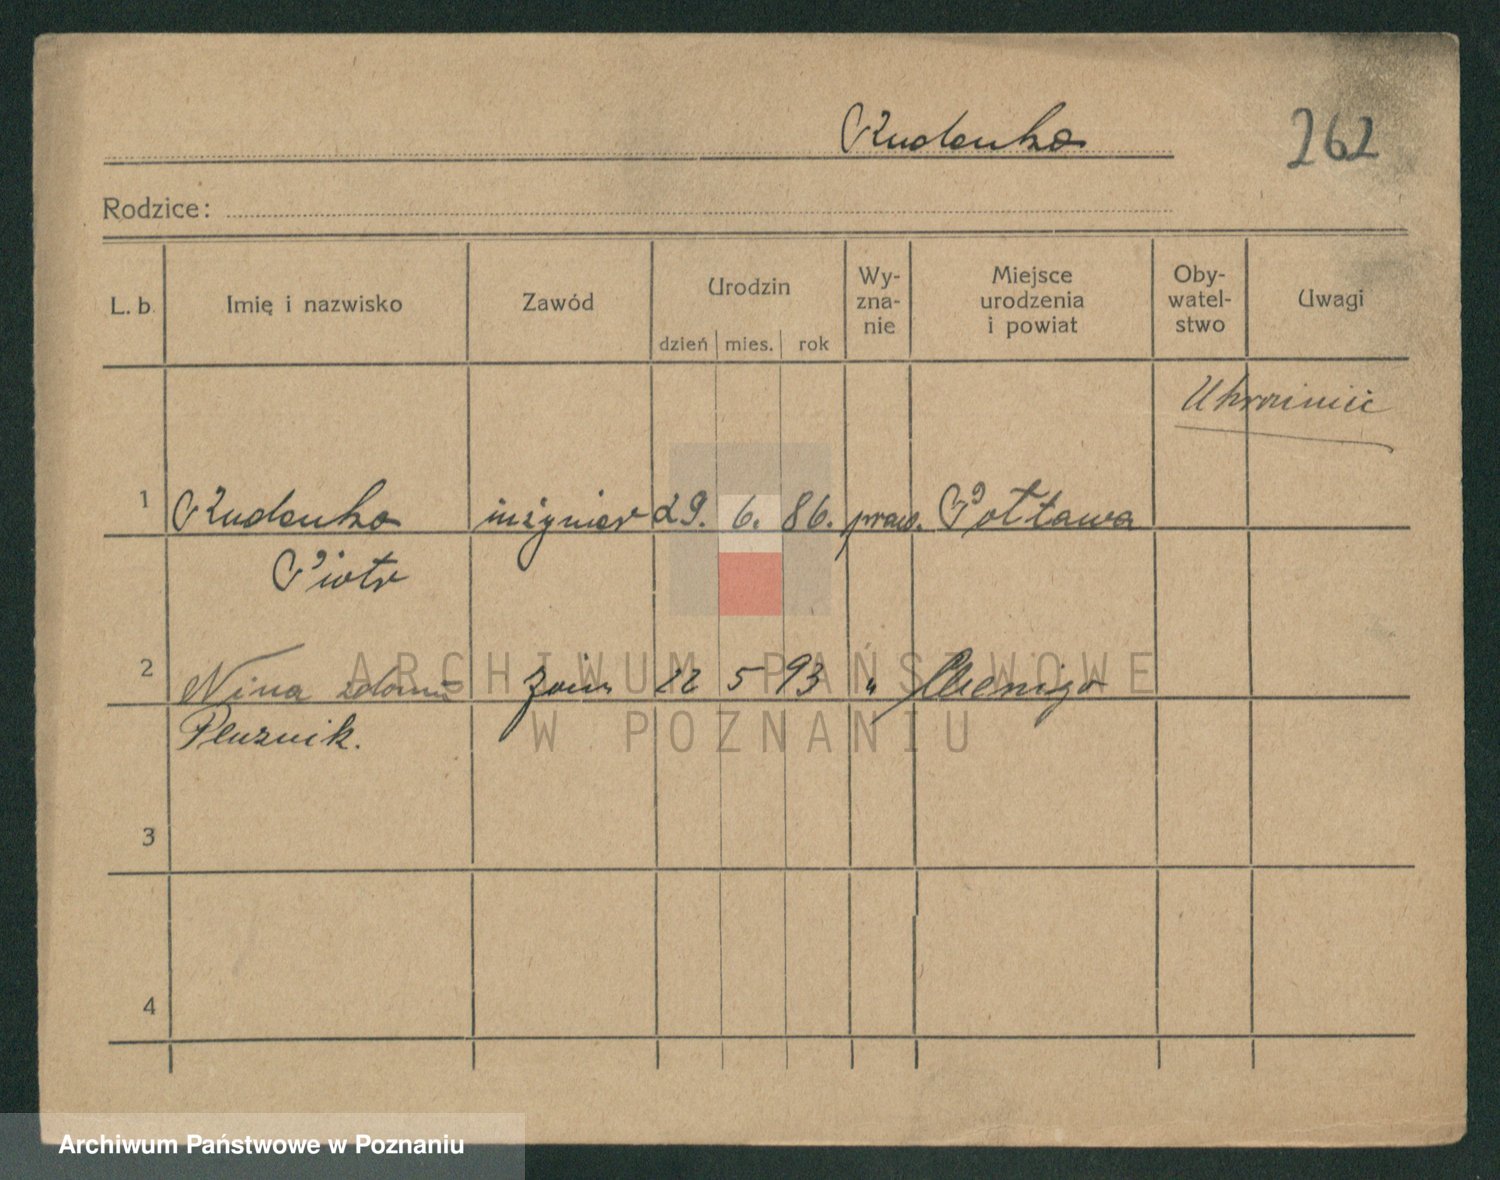 Rudenko
262
Rodzice:
L. b. Imię i nazwisko Zawód Urodzin Wy-zna-nie Miejsce urodzenia i powiat Oby-watel-stwo Uwagi
dzień mies. rok
Ukrainiec
1 Rudenko inżynier 29. 6. 86. praw. Połtawa
Piotr
2 Nina z domu 22 5 93 "
Pluznik.
3
4
ARCHIWUM PAŃSTWOWE
W POZNANIU
Archiwum Państwowe w Poznaniu